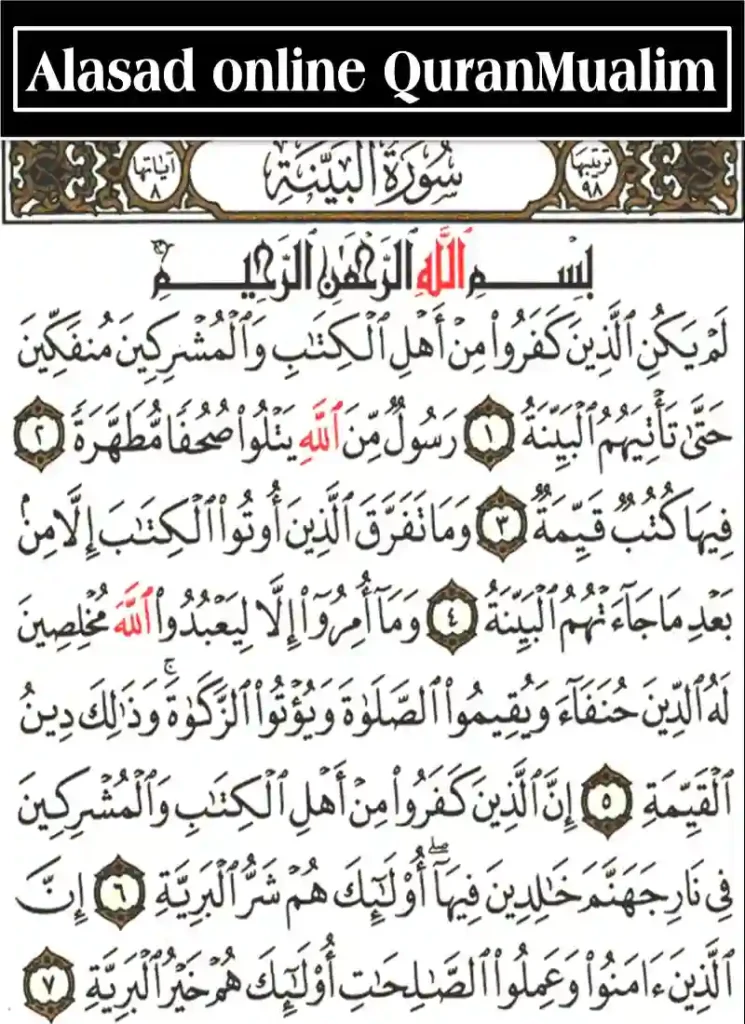 Alasad online QuranMualim
ترتيبها ٩٨ سُورَةُ البَيِّنَةِ آياتها ٨
بِسْمِ ٱللَّهِ ٱلرَّحْمَٰنِ ٱلرَّحِيمِ
لَمْ يَكُنِ ٱلَّذِينَ كَفَرُوا۟ مِنْ أَهْلِ ٱلْكِتَٰبِ وَٱلْمُشْرِكِينَ مُنفَكِّينَ
حَتَّىٰ تَأْتِيَهُمُ ٱلْبَيِّنَةُ ١ رَسُولٌ مِّنَ ٱللَّهِ يَتْلُوا۟ صُحُفًا مُّطَهَّرَةً ٢
فِيهَا كُتُبٌ قَيِّمَةٌ ٣ وَمَا تَفَرَّقَ ٱلَّذِينَ أُوتُوا۟ ٱلْكِتَٰبَ إِلَّا مِنۢ
بَعْدِ مَا جَآءَتْهُمُ ٱلْبَيِّنَةُ ٤ وَمَآ أُمِرُوٓا۟ إِلَّا لِيَعْبُدُوا۟ ٱللَّهَ مُخْلِصِينَ
لَهُ ٱلدِّينَ حُنَفَآءَ وَيُقِيمُوا۟ ٱلصَّلَوٰةَ وَيُؤْتُوا۟ ٱلزَّكَوٰةَ ۚ وَذَٰلِكَ دِينُ
ٱلْقَيِّمَةِ ٥ إِنَّ ٱلَّذِينَ كَفَرُوا۟ مِنْ أَهْلِ ٱلْكِتَٰبِ وَٱلْمُشْرِكِينَ
فِى نَارِ جَهَنَّمَ خَٰلِدِينَ فِيهَآ ۖ أُو۟لَٰٓئِكَ هُمْ شَرُّ ٱلْبَرِيَّةِ ٦ إِنَّ
ٱلَّذِينَ ءَامَنُوا۟ وَعَمِلُوا۟ ٱلصَّٰلِحَٰتِ أُو۟لَٰٓئِكَ هُمْ خَيْرُ ٱلْبَرِيَّةِ ٧